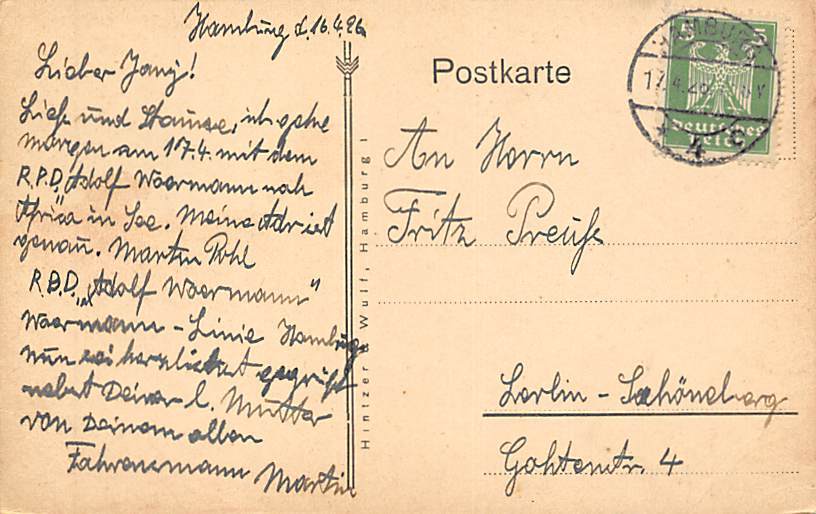 Hamburg d. 16.4.26
Lieber
und ich gehe
morgen am 17.4. mit dem
R.P.D. Adolf Woermann nah
Afrika in See. Meine Adr ist
genau. Martin Pohl
R.P.D. „Adolf Woermann"
Woermann-Linie Hamburg
nun sei herzlichst gegrüßt
nebst Deiner l. Mutter
von Deinem alten
Fahrensmann Martin
Hintzer & Wulf, Hamburg 1
Postkarte
An Herrn
Fritz Preuß
Berlin-Schöneberg
4
HAMBURG
17.4.26
* 4 c
5 5
Deutsches
Reich